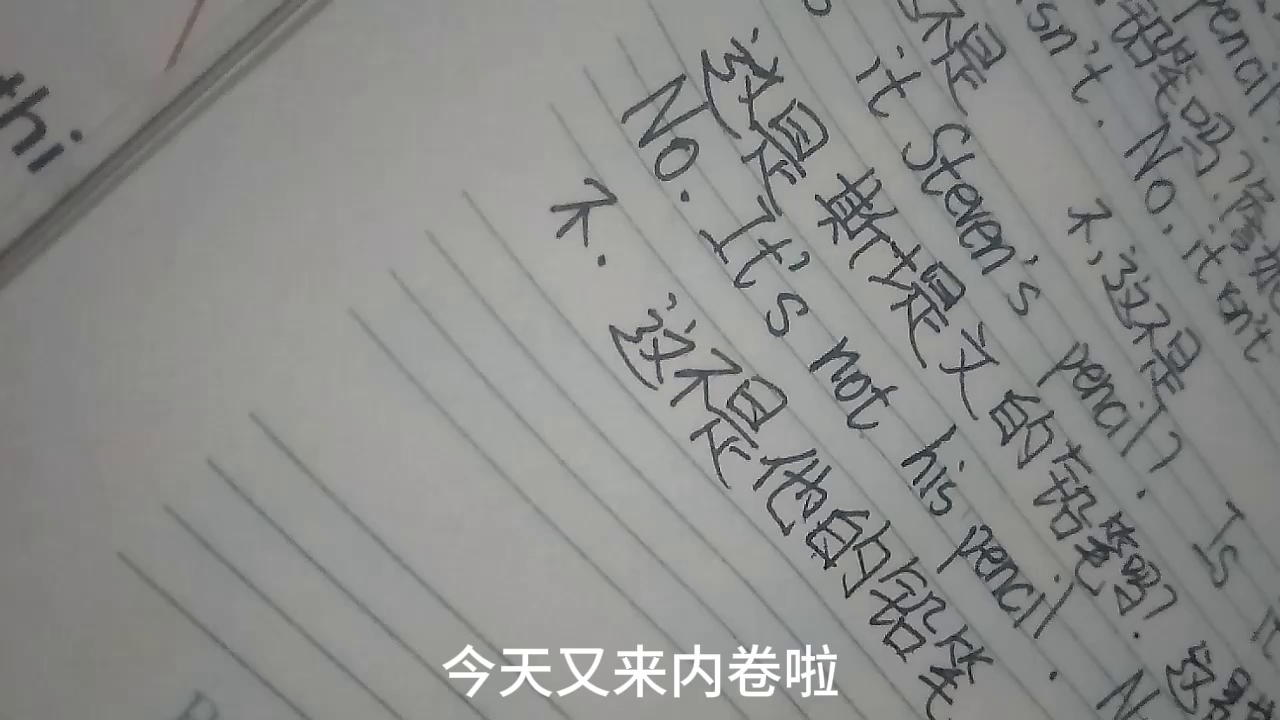 thi
pencil?
isn't. No, it isn't
铅笔吗?
不是 不,这不是
it Steven's pencil? Is it
这是斯堤文的铅笔吗? 这是
No. It's not his pencil. N
不. 这不是他的铅笔
今天又来内卷啦